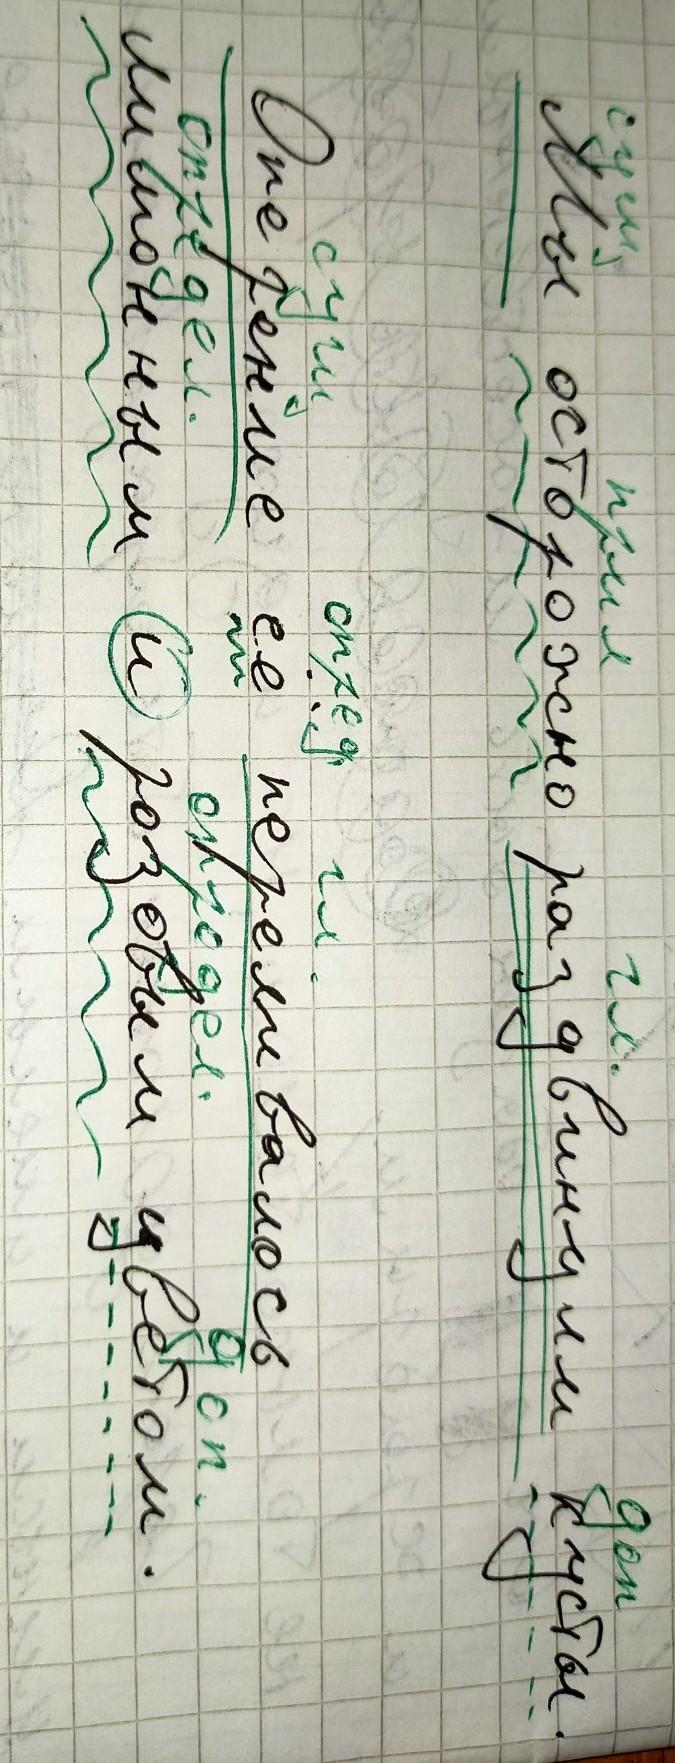 сущ. прил гл. доп
Мы осторожно раздвинули кусты.
сущ. опред. гл.
Оперение ее переливалось
определ. определ. доп.
лимонным и розовым цветом.